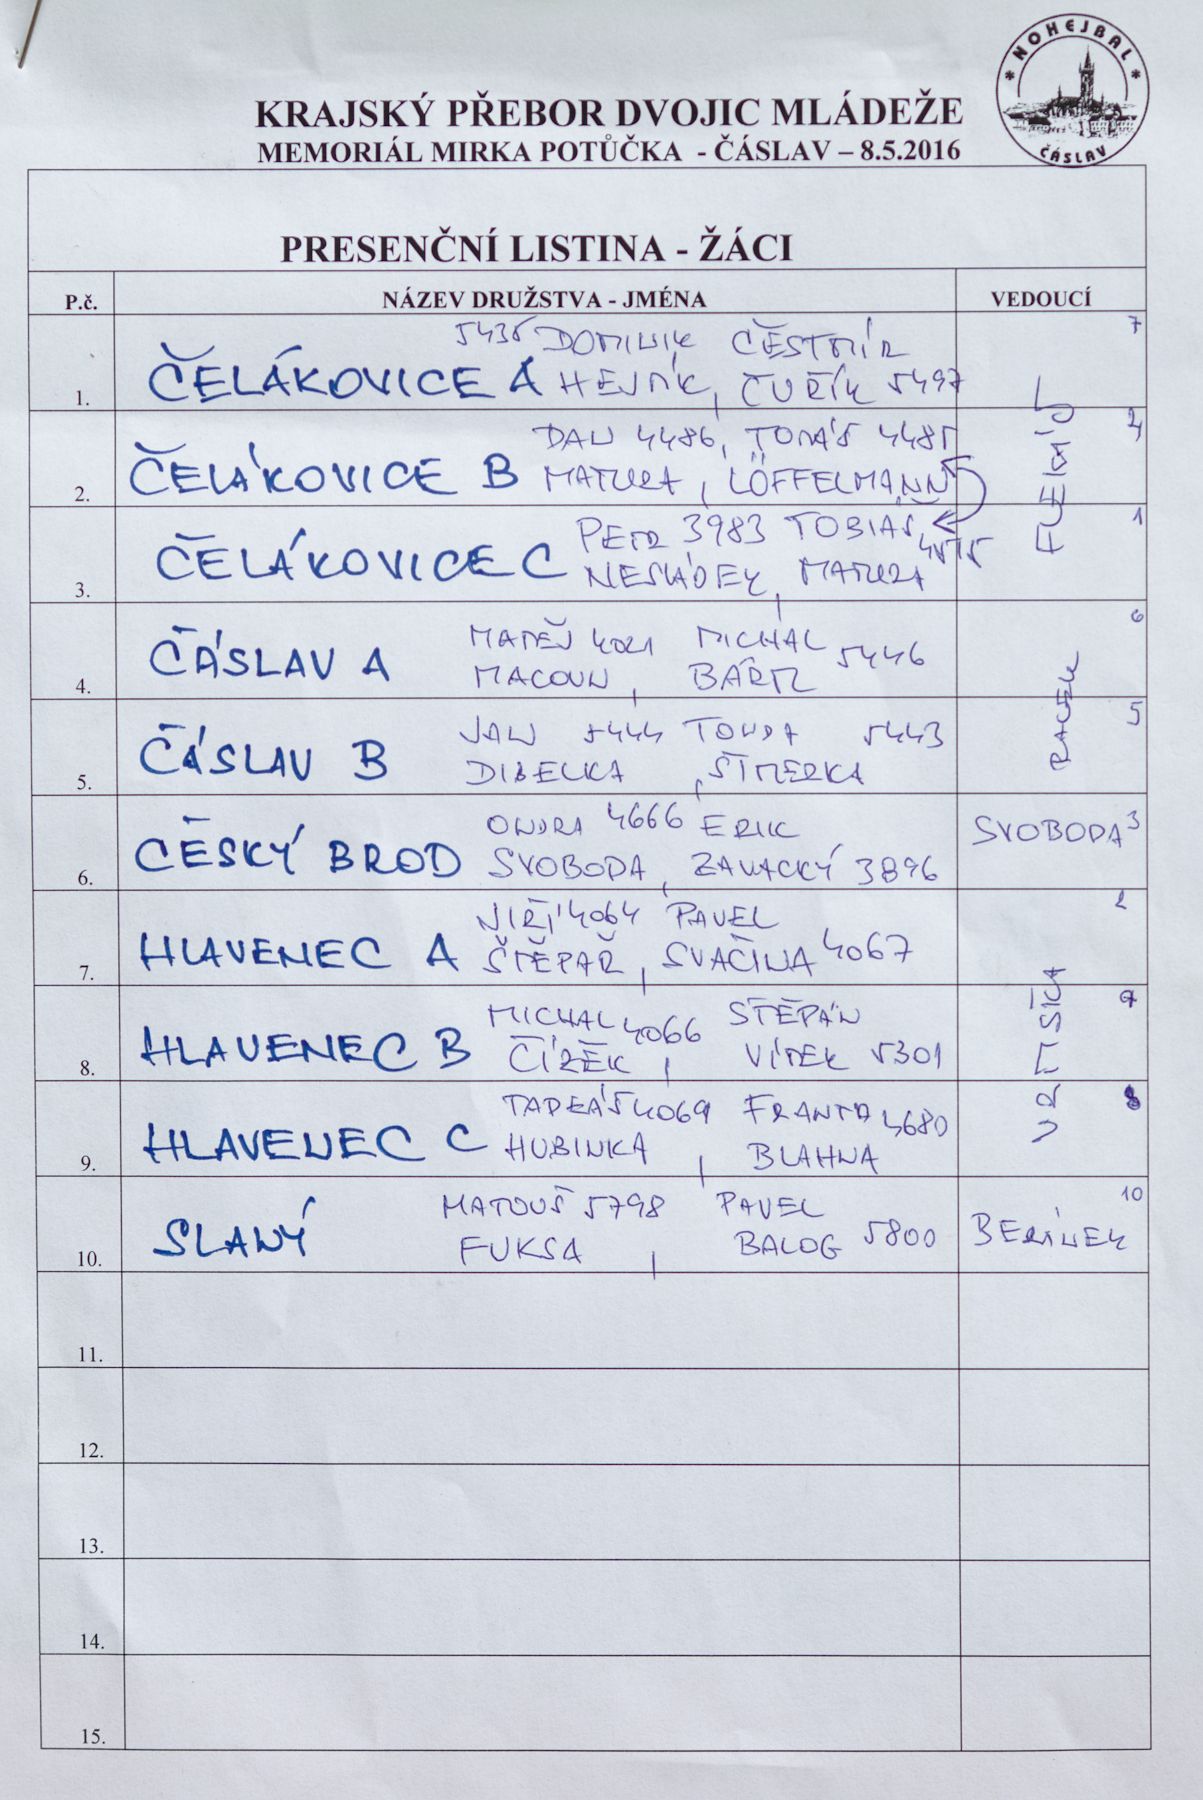 NOHEJBAL
ČÁSLAV
KRAJSKÝ PŘEBOR DVOJIC MLÁDEŽE
MEMORIÁL MIRKA POTŮČKA - ČÁSLAV – 8.5.2016
PRESENČNÍ LISTINA - ŽÁCI
P.č. NÁZEV DRUŽSTVA - JMÉNA VEDOUCÍ
5435 DOMINIK ČESTMÍR 7
1. ČELÁKOVICE A HEJNÍK, ČUŘÍK 5497
DAN 4486, TOMÁŠ 4485
2. ČELÁKOVICE B MATURA, LÖFFELMANN
PETR 3983 TOBIÁŠ 4575 1
3. ČELÁKOVICE C NESLÁDEK, MATURA
MATĚJ 4021 MICHAL 5446 6
4. ČÁSLAV A MACOUN, BÁRTL
JAN 5444 TONDA 5443 5
5. ČÁSLAV B DIBELKA, ŠIMERKA
ONDRA 4666 ERIK SVOBODA 3
6. ČESKÝ BROD SVOBODA, ZAVACKÝ 3896
JIŘÍ 4064 PAVEL 2
7. HLAVENEC A ŠTĚPAŘ, SVAČINA 4067
MICHAL 4066 ŠTĚPÁN 9
8. HLAVENEC B ČÍŽEK, VÍTEK 5301
TADEÁŠ 4069 FRANTA 4680 8
9. HLAVENEC C HUBINKA, BLAHNA
MATOUŠ 5798 PAVEL 10
10. SLANÝ FUKSA, BALOG 5800 BERÁNEK
11.
12.
13.
14.
15.